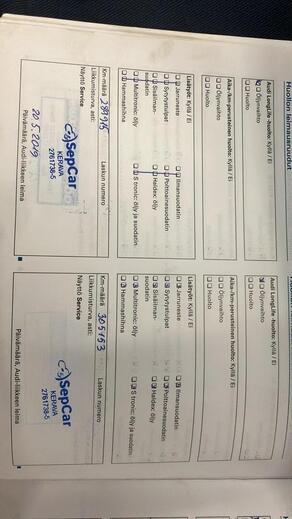 Huollon leimausruudut
Audi LongLife -huolto: Kyllä / Ei
Öljynvaihto
Huolto
Aika-/km-perusteinen huolto: Kyllä / Ei
Öljynvaihto
Huolto
Lisätyöt: Kyllä / Ei
Jarruneste
Ilmansuodatin
Sytytystulpat
Polttoainesuodatin
Sisäilman-
suodatin
Haldex: öljy
Multitronic: öljy
S tronic: öljy ja suodatin
Hammashihna
Km-määrä
Laskun numero
Liikkumisturva, asti:
Näyttö Service
SepCar
KERAVA
2761738-5
Päivämäärä, Audi-liikkeen leima
Audi LongLife -huolto: Kyllä / Ei
Öljynvaihto
Huolto
Aika-/km-perusteinen huolto: Kyllä / Ei
Öljynvaihto
Huolto
Lisätyöt: Kyllä / Ei
Jarruneste
Ilmansuodatin
Sytytystulpat
Polttoainesuodatin
Sisäilman-
suodatin
Haldex: öljy
Multitronic: öljy
S tronic: öljy ja suodatin
Hammashihna
Km-määrä 305153
Laskun numero
Liikkumisturva, asti:
Näyttö Service
SepCar
KERAVA
2761738-5
Päivämäärä, Audi-liikkeen leima